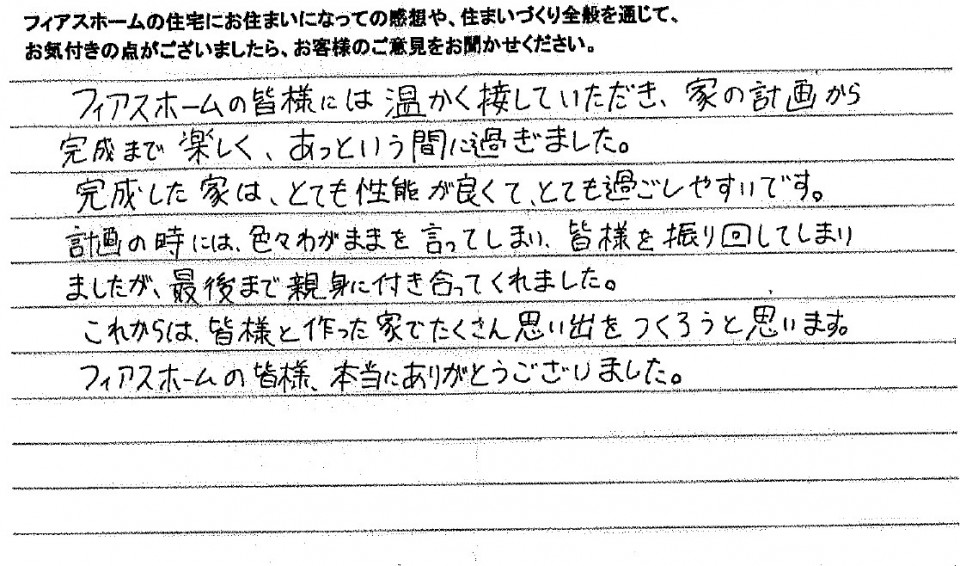 フィアスホームの住宅にお住まいになっての感想や、住まいづくり全般を通じて、
お気付きの点がございましたら、お客様のご意見をお聞かせください。
フィアスホームの皆様には温かく接していただき、家の計画から
完成まで楽しく、あっという間に過ぎました。
完成した家は、とても性能が良くて、とても過ごしやすいです。
計画の時には、色々わがままを言ってしまい、皆様を振り回してしまり
ましたが、最後まで親身に付き合ってくれました。
これからは、皆様と作った家でたくさん思い出をつくろうと思います。
フィアスホームの皆様、本当にありがとうございました。